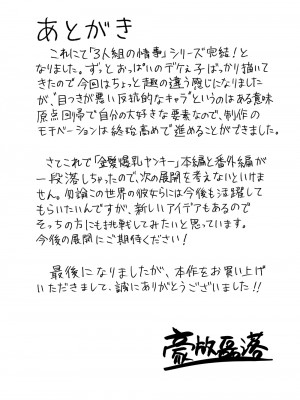 あとがき
これにて「3人組の情事」シリーズ完結！と
なりました。ずっとおっぱいのデケぇ子ばっかり描いて
きたので今回はちょっと趣の違う感じになりました
が、"目つきが悪い反抗的なキャラ"というのはある意味
原点回帰で自分の大好きな要素なので、制作の
モチベーションは終始高めで進めることができました。
さてこれで「金髪爆乳ヤンキー」本編と番外編が
一段落しちゃったので、次の展開を考えないといけま
せん。勿論この世界の彼ならには今後も活躍して
もらいたいんですが、新しいアイデアもあるので
そっちの方にも挑戦してみたいと思っています。
今後の展開にご期待ください！
最後になりましたが、本作をお買い上げ
いただきまして、誠にありがとうございました!!
豪放磊落